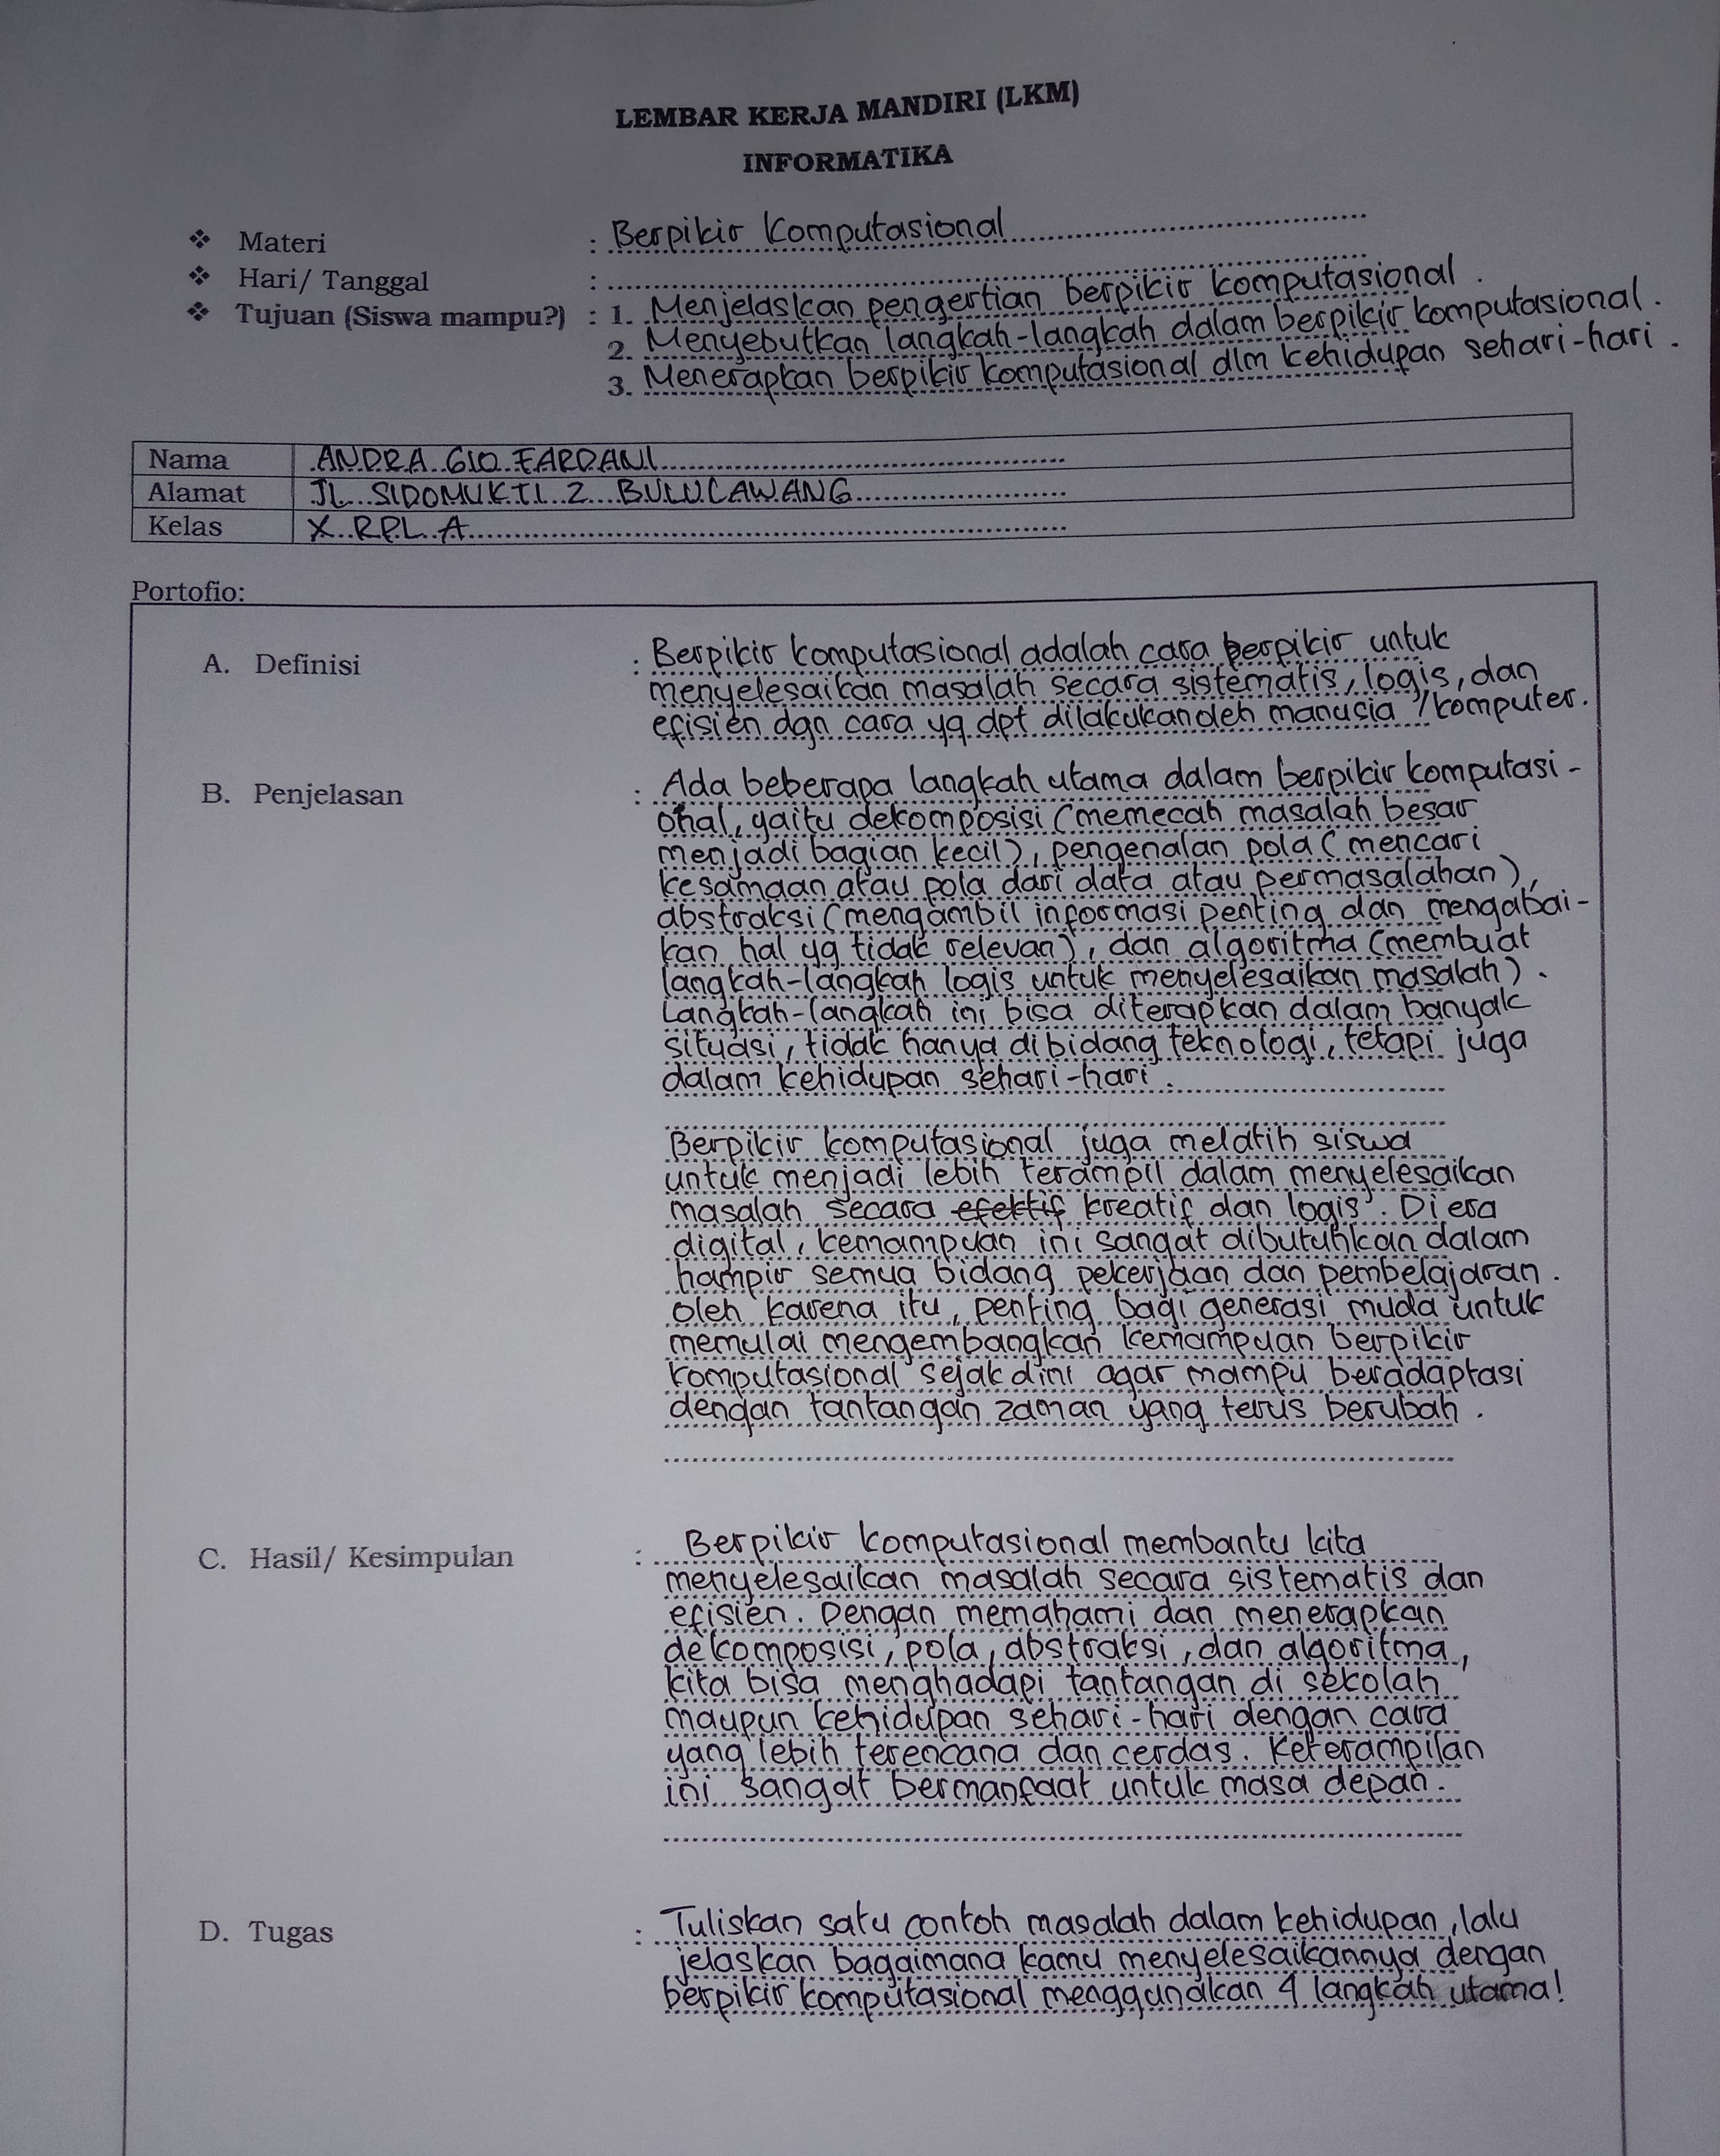 LEMBAR KERJA MANDIRI (LKM)
INFORMATIKA
❖ Materi : Berpikir Komputasional
❖ Hari/ Tanggal :
❖ Tujuan (Siswa mampu?) : 1. Menjelaskan pengertian berpikir komputasional.
2. Menyebutkan langkah-langkah dalam berpikir komputasional.
3. Menerapkan berpikir komputasional dlm kehidupan sehari-hari.
Nama ANDRA GIO FARDANI
Alamat JL SIDOMUKTI 2 BULUCAWANG
Kelas X RPL A
Portofio:
A. Definisi : Berpikir komputasional adalah cara berpikir untuk
menyelesaikan masalah secara sistematis, logis, dan
efisien dgn cara yg dpt dilakukan oleh manusia / komputer.
B. Penjelasan : Ada beberapa langkah utama dalam berpikir komputasi-
onal, yaitu dekomposisi (memecah masalah besar
menjadi bagian kecil), pengenalan pola (mencari
kesamaan atau pola dari data atau permasalahan),
abstraksi (mengambil informasi penting dan mengabai-
kan hal yg tidak relevan), dan algoritma (membuat
langkah-langkah logis untuk menyelesaikan masalah).
Langkah-langkah ini bisa diterapkan dalam banyak
situasi, tidak hanya di bidang teknologi, tetapi juga
dalam kehidupan sehari-hari.
Berpikir komputasional juga melatih siswa
untuk menjadi lebih terampil dalam menyelesaikan
masalah secara efektif kreatif dan logis. Di era
digital, kemampuan ini sangat dibutuhkan dalam
hampir semua bidang pekerjaan dan pembelajaran.
oleh karena itu, penting bagi generasi muda untuk
memulai mengembangkan kemampuan berpikir
komputasional sejak dini agar mampu beradaptasi
dengan tantangan zaman yang terus berubah.
C. Hasil/ Kesimpulan : Berpikir komputasional membantu kita
menyelesaikan masalah secara sistematis dan
efisien. Dengan memahami dan menerapkan
dekomposisi, pola, abstraksi, dan algoritma,
kita bisa menghadapi tantangan di sekolah
maupun kehidupan sehari-hari dengan cara
yang lebih terencana dan cerdas. Keterampilan
ini sangat bermanfaat untuk masa depan.
D. Tugas : Tuliskan satu contoh masalah dalam kehidupan, lalu
jelaskan bagaimana kamu menyelesaikannya dengan
berpikir komputasional menggunakan 4 langkah utama!